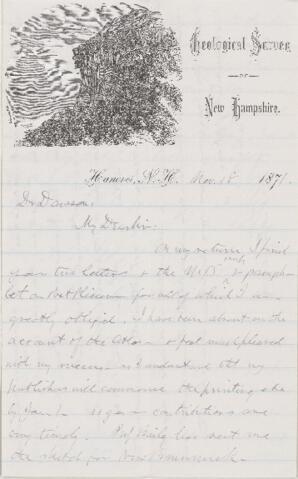 Geological Survey
OF
New Hampshire.
Hanover, N.H. Nov. 18 1871
Dr Dawson,
My Dr sir:
On my return I find
your two letters & the
for all of which I am
greatly obliged. I have been absent on the
account of the Atlas & feel much pleased
with my success as I understand that my
publishers will commence the printing
by Jan 1. Your contributions are
very timely. Prof Baily has sent me
the sketch for New Brunswick.